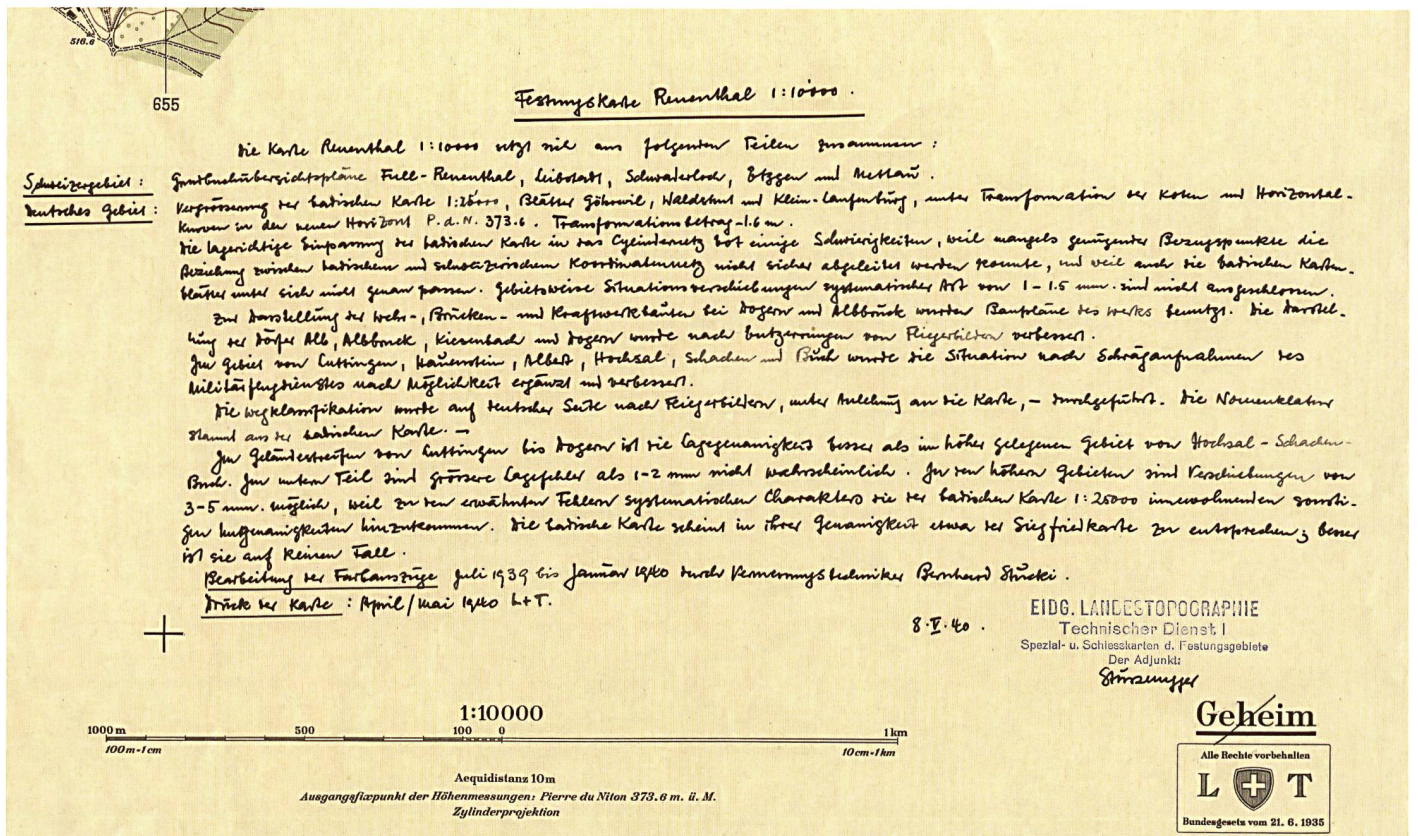 516.6
655
Festungskarte Reuenthal 1:10'000.
Die Karte Reuenthal 1:10000 setzt sich aus folgenden Teilen zusammen:
Schweizergebiet: Grundbuchübersichtspläne Full-Reuenthal, Leibstadt, Schwaderloch, Etzgen und Mettau.
Deutsches Gebiet: Vergrösserung der badischen Karte 1:25'000, Blätter Görwil, Waldshut und Klein-Laufenburg, unter Transformation der Koten und Horizontal-
kurven in den neuen Horizont P.d.N. 373.6. Transformationsbetrag -1.6 m.
Die lagerichtige Einpassung der badischen Karte in das Cylindernetz bot einige Schwierigkeiten, weil mangels genügender Bezugspunkte die
Beziehung zwischen badischem und schweizerischem Koordinatennetz nicht sicher abgeleitet werden konnte, und weil auch die badischen Karten-
blätter unter sich nicht genau passen. Gebietsweise Situationsverschiebungen systematischer Art von 1-1.5 mm. sind nicht ausgeschlossen.
Zur Darstellung der Wehr-, Brücken- und Kraftwerkbauten bei Dogern und Albbruck wurden Baupläne des Werks benutzt. Die Darstel-
lung der Dörfer Alb, Albbruck, Kiesenbach und Dogern wurde nach Entzerrungen von Fliegerbildern verbessert.
Im Gebiet von Luttingen, Hauenstein, Albert, Hochsal, Schachen und Buch wurde die Situation nach Schrägaufnahmen des
Militärflugdienstes nach Möglichkeit ergänzt und verbessert.
Die Wegklassifikation wurde auf deutscher Seite nach Fliegerbildern, unter Anlehung an die Karte, - durchgeführt. Die Nomenklatur
stammt aus der badischen Karte. -
Im Geländestreifen von Luttingen bis Dogern ist die Lagegenauigkeit besser als im höher gelegenen Gebiet von Hochsal - Schachen -
Buch. Im untern Teil sind grössere Lagefehler als 1-2 mm nicht wahrscheinlich. In den höhern Gebieten sind Verschiebungen von
3-5 mm. möglich, weil zu den erwähnten Fehlern systematischen Charakters die der badischen Karte 1:25000 innewohnenden sonsti-
gen Ungenauigkeiten hinzukommen. Die badische Karte scheint in ihrer Genauigkeit etwa der Siegfriedkarte zu entsprechen; besser
ist sie auf keinen Fall.
Bearbeitung der Farbauszüge Juli 1939 bis Januar 1940 durch Vermessungstechniker Bernhard Stucki.
Druck der Karte: April/Mai 1940 L+T.
8.V.40.
EIDG. LANDESTOPOGRAPHIE
Technischer Dienst I
Spezial- u. Schiesskarten d. Festungsgebiete
Der Adjunkt:
Geheim
1:10000
1000 m 500 100 0 1 km
100 m=1 cm 10 cm=1 km
Aequidistanz 10 m
Ausgangsfixpunkt der Höhenmessungen: Pierre du Niton 373.6 m. ü. M.
Zylinderprojektion
Alle Rechte vorbehalten
L T
Bundesgesetz vom 21. 6. 1935